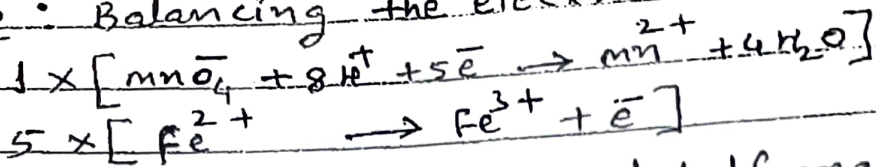 : Balancing the
1 × [ mnO₄⁻ + 8H⁺ + 5e⁻ → mn²⁺ + 4H₂O ]
5 × [ Fe²⁺ → Fe³⁺ + e⁻ ]